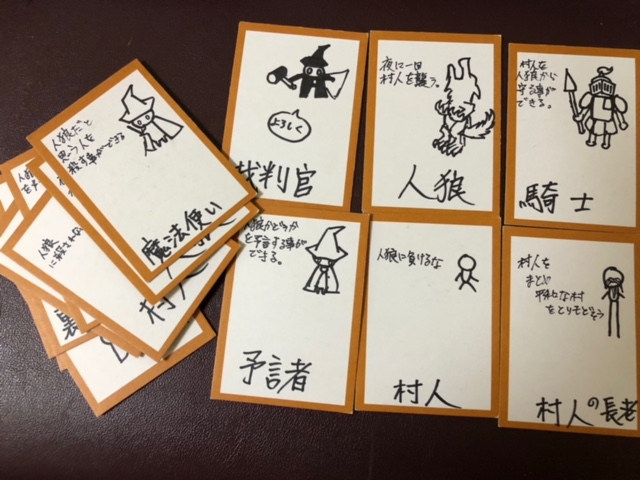 人狼だと
思う人を
殺す事ができる
魔法使い
よろしく
裁判官
夜に一回
村人を襲う。
人狼
村人を
人狼から
守る事が
できる。
騎士
人狼
に殺されな
村人
裏
人狼かどうか
を予言する事が
できる。
予言者
人狼に負けるな
村人
村人を
まとめ
平和な村
をとりもどそう
村人の長老